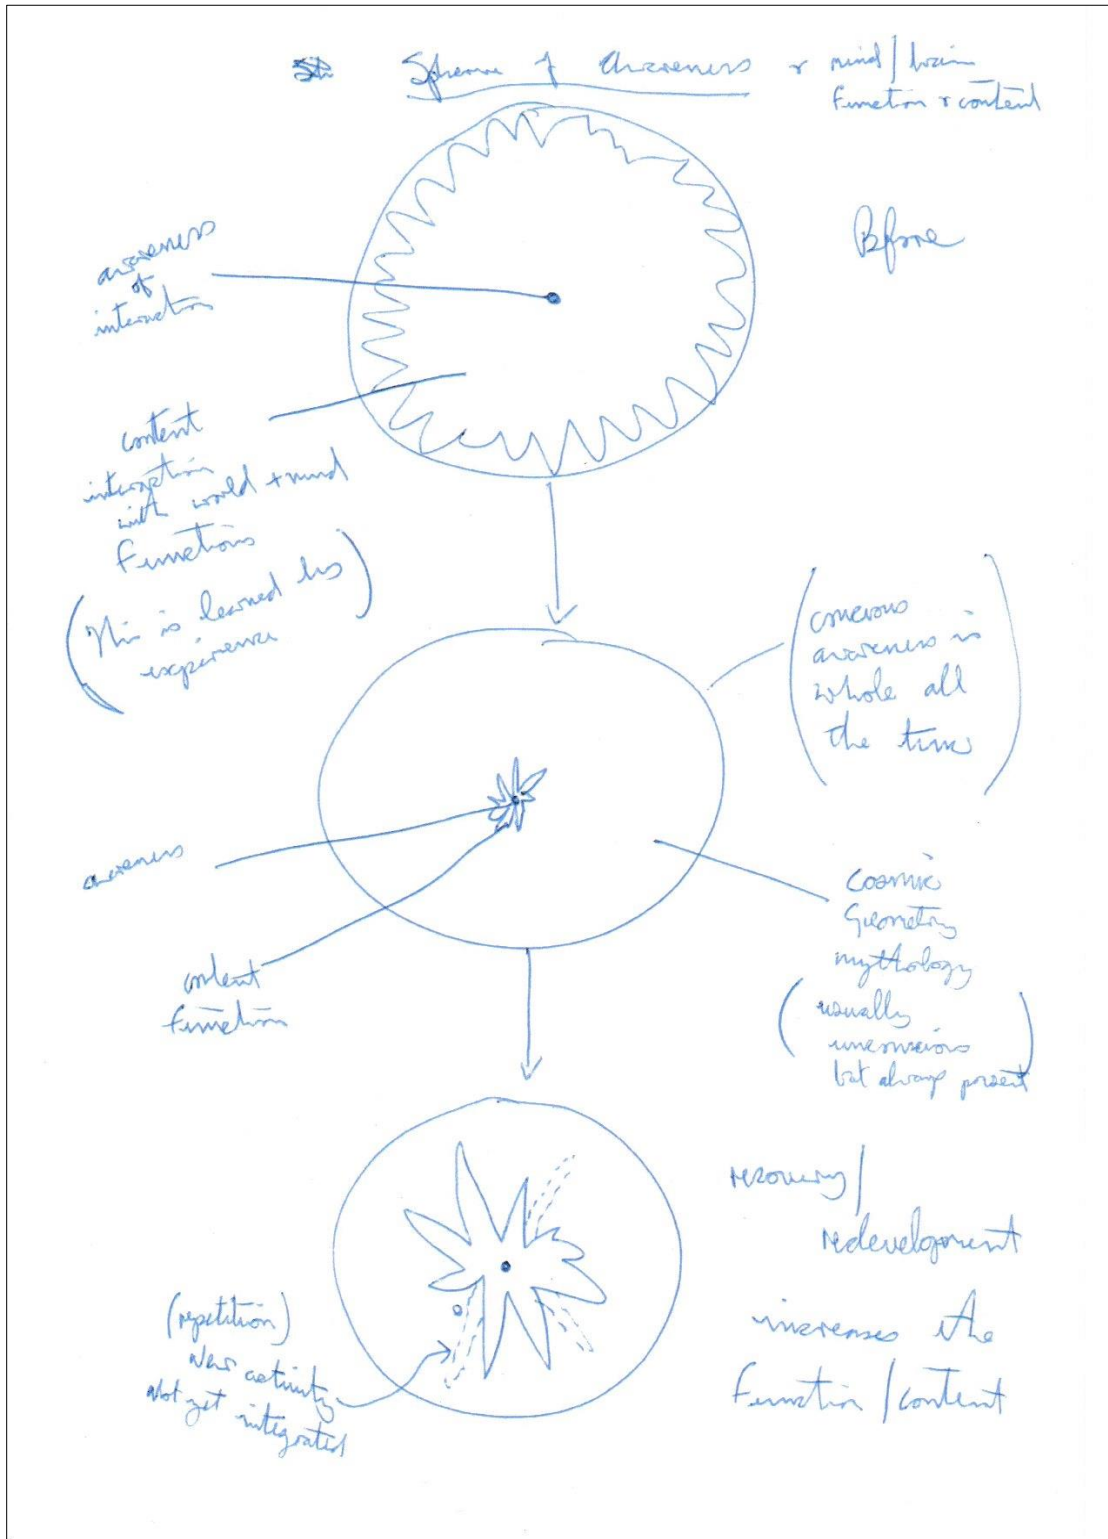 Sphere of Awareness & mind/brain
Function & content
Before
awareness
of
interaction
content
interaction
with world + mind
Functions
(This is learned his
experience)
(conscious
awareness is
whole all
the time)
awareness
content
function
Cosmic
Geometry
mythology
(usually
unconscious
but always present)
recovery/
redevelopment
increases the
Function/content
(repetition)
New activity
Not yet integrated